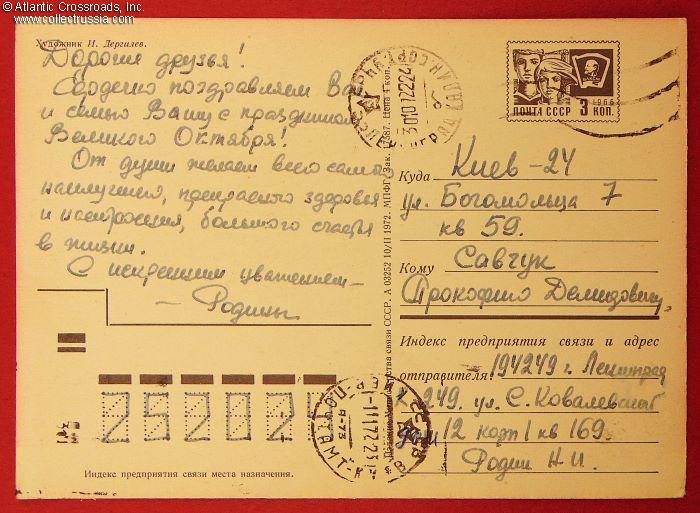 © Atlantic Crossroads, Inc.
www.collectrussia.com
Художник И. Дергилев.
Дорогие друзья!
Сердечно поздравляем Вас
и семью Вашу с праздником
Великого Октября!
От души желаем всего самого
наилучшего, прекрасного здоровья
и настроения, большого счастья
в жизни.
С искренним уважением –
– Родины
ПОЧТА СССР 3 КОП.
1966
Куда Киев-24
ул. Богомольца 7
кв 59.
Кому Савчук
Прокофию Демидовичу
Индекс предприятия связи и адрес
отправителя: 194249 г. Ленинград
К-249. ул. С. Ковалевской
дом 12 корп 1 кв 169.
Родин Н. И.
связи СССР. А 03252 10/II 1972. МПФГ. Зак. Цена 4 коп.
252024
Индекс предприятия связи места назначения.